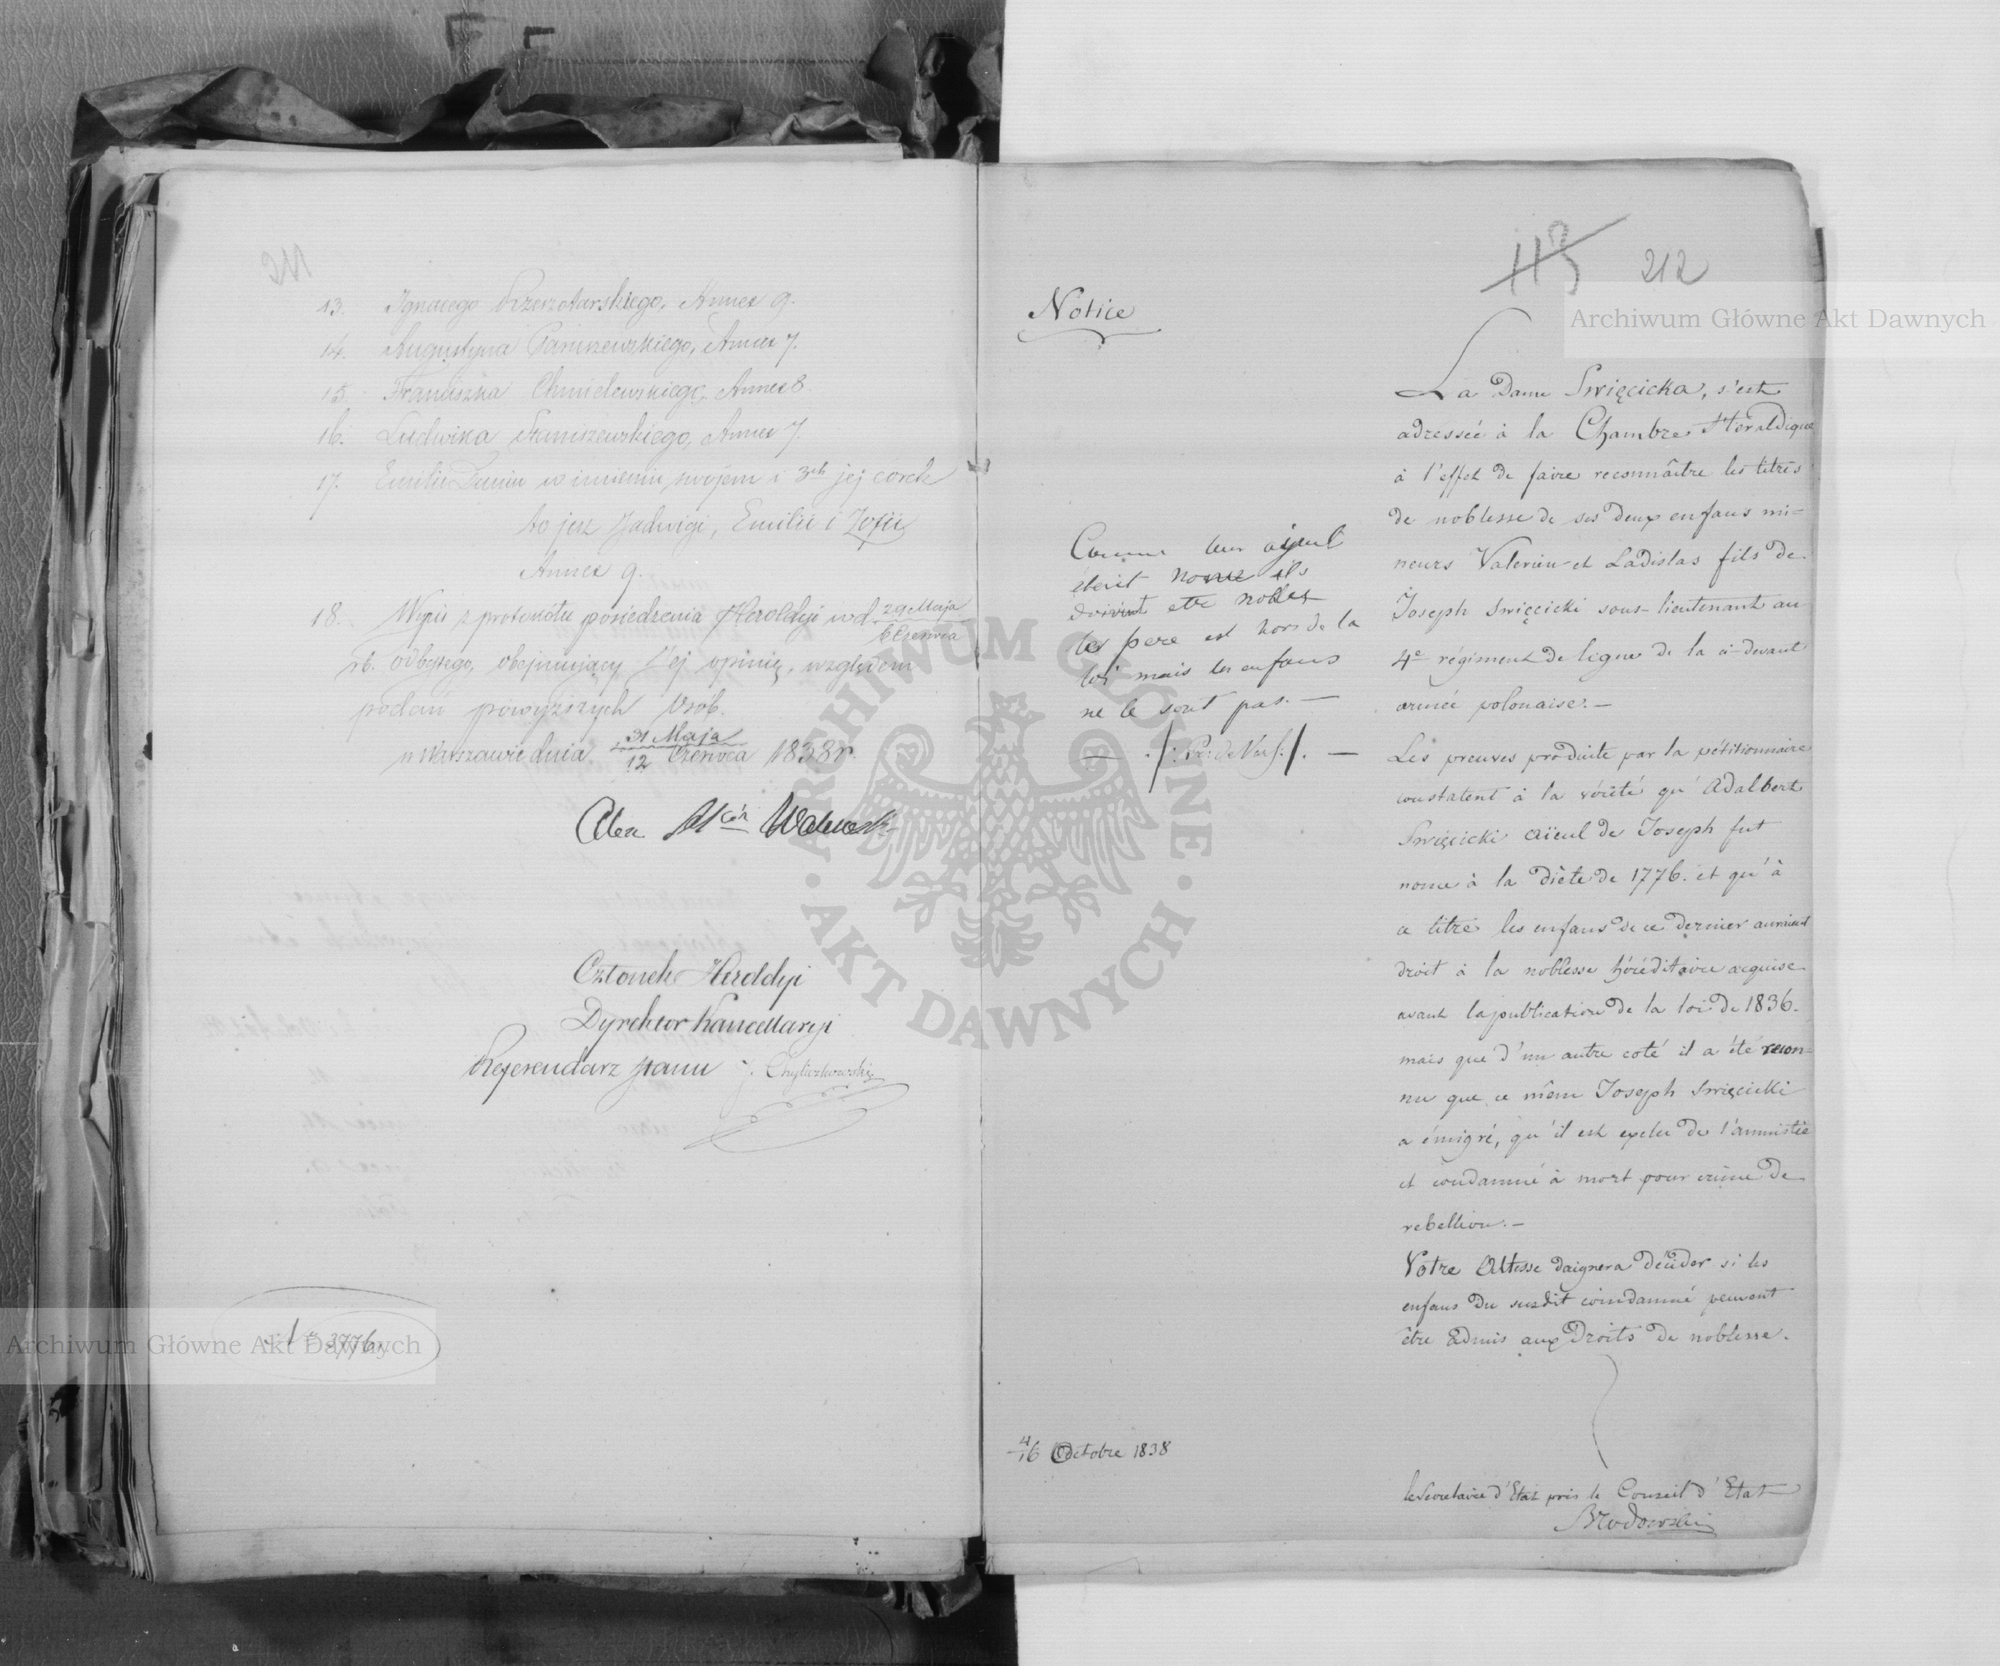 13. Ignacego Rzeszotarskiego, Annex 9.
14. Augustyna Paniszewskiego, Annex 7.
15. Franciszka Chmielewskiego, Annex 8.
16. Ludwika Staniszewskiego, Annex 7.
17. Emilii Dunin w imieniu swojem i 3ch jej córek
to jest Jadwigi, Emilii i Zofii
Annex 9.
18. Wypis z protokółu posiedzenia Heroldyi w d. 29 Maja
Czerwca
rb. odbytego, obejmujący Jej opinię, względem
podań powyższych osób.
w Warszawie dnia 31 Maja
12 Czerwca 1838 r.
Członek Heroldyi
Dyrektor Kancellaryi
Referendarz Stanu J. Chyliczkowski
3776
Notice
113 212
Comme leur ayeul
était nome ils
doivent etre nobles
le pere est hors de la
loi mais les enfans
ne le sont pas. —
4/16 Octobre 1838
La Dame Swięcicka, s'est
adressée à la Chambre Héraldique
à l'effet de faire reconnâitre les titres
de noblesse de ses deux enfans mi=
neurs Valerien et Ladislas fils de
Joseph Swięcicki sous-lieutenant au
4e régiment de ligne de la ci-devant
armée polonaise. —
Les preuves produite par la pétitionnaire
constatent à la vérité qu'Adalbert
Swięcicki aïeul de Joseph fut
nome à la diète de 1776. et qu'à
ce titre les enfans de ce dernier auraient
droit à la noblesse héréditaire acquise
avant la publication de la loi de 1836.
mais que d'un autre coté il a été recon=
nu que ce même Joseph Swięcicki
a émigré, qu'il est exclu de l'amnistie
et condamné à mort pour crime de
rebellion. —
Votre Altesse daignera décider si les
enfans du susdit condamné peuvent
être admis aux droits de noblesse.
le Secretaire d'Etat près le Conseil d'Etat
Brodowski
Archiwum Główne Akt Dawnych
Archiwum Główne Akt Dawnych
ARCHIWUM GŁÓWNE
· AKT DAWNYCH ·